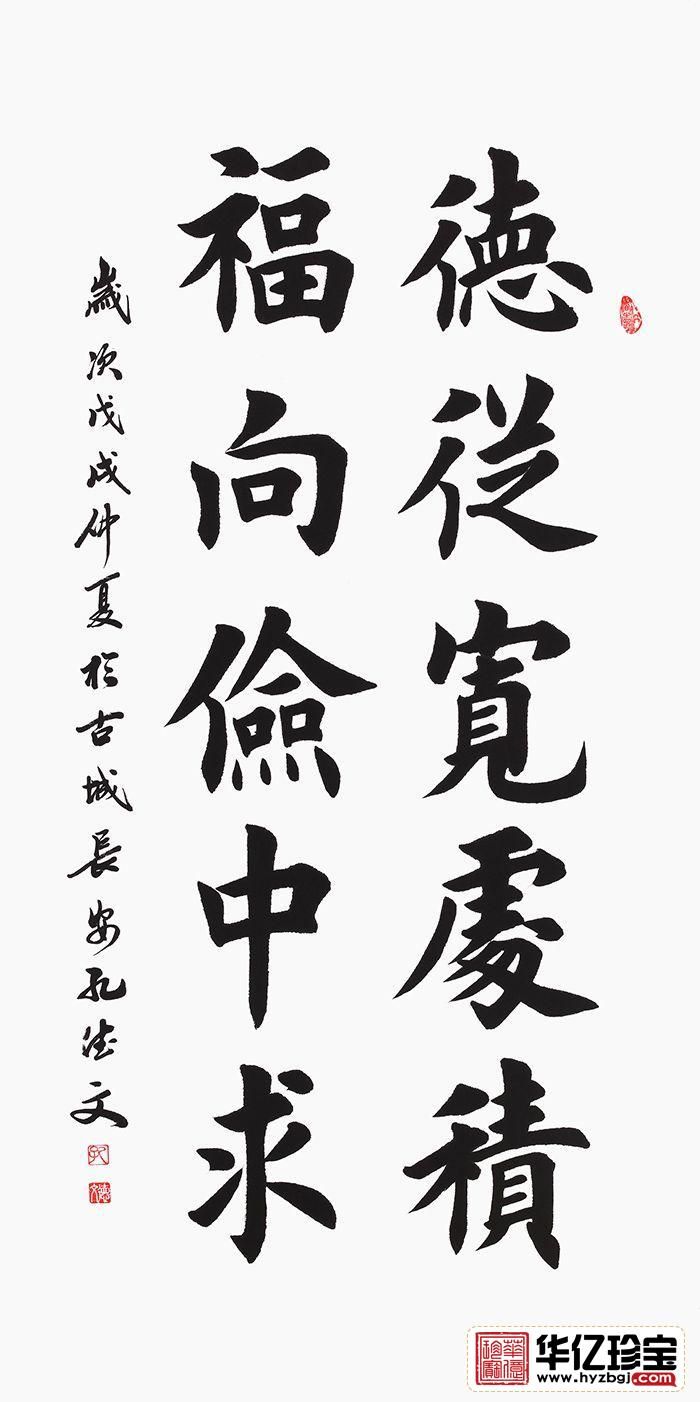 德從寬處積
福向儉中求
歲次戊戌仲夏於古城長安孔德文
孔
德文
华亿珍宝
www.hyzbgj.com